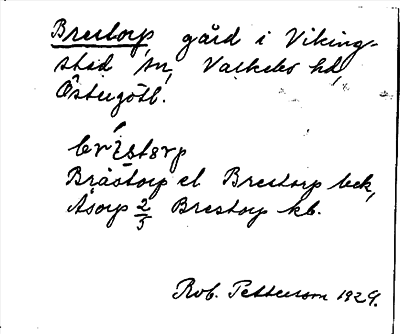 Brestorp gård i Viking-
stad sn, Valkebo hd,
Östergötl.
brestorp
Bråstorp el Brestorp bek,
Åsorp 2/5 Brestorp kb.
Rob. Pettersson 1929.